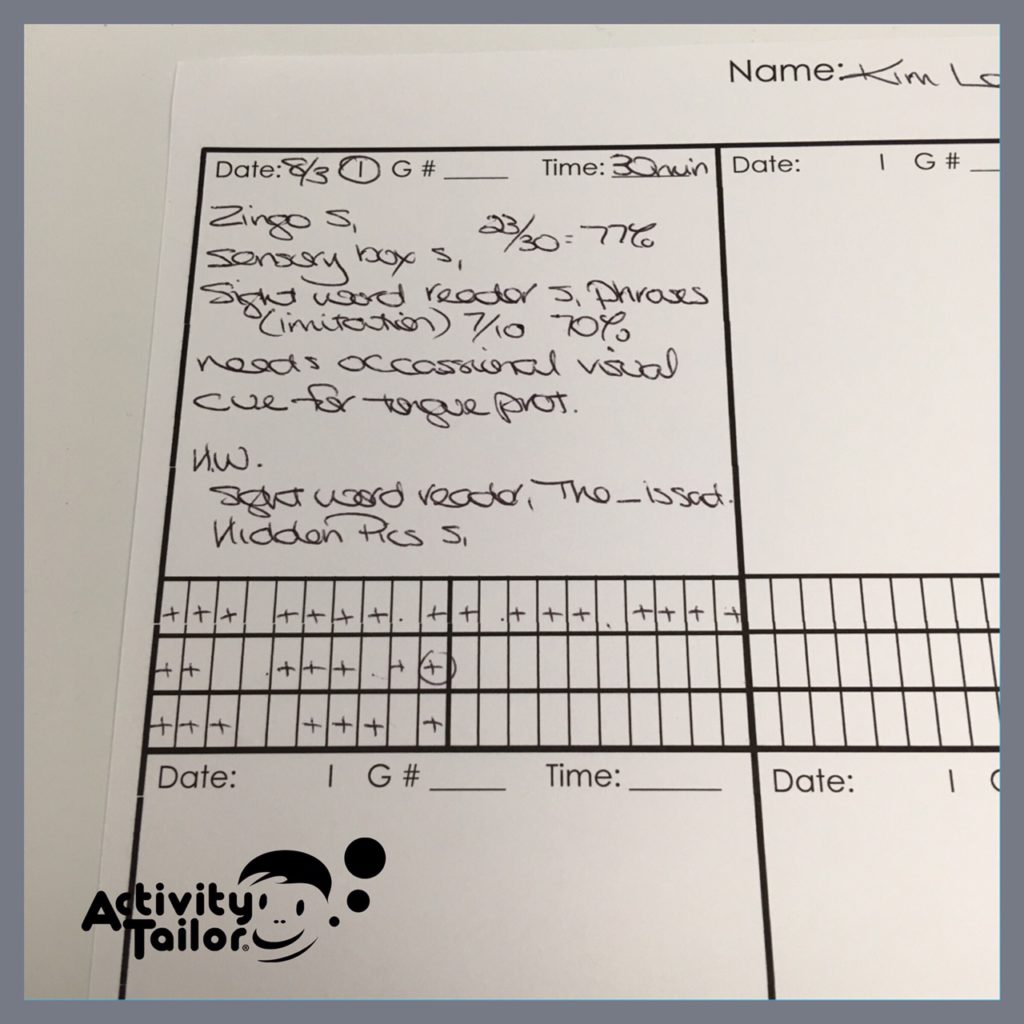 Name: Kim Lo
Date: 8/3 I G # ____ Time: 30min
Zingo S,
23/30 = 77%
sensory box s,
Sight word reader s, phrases
(imitation) 7/10 70%
needs occassional visual
cue for tongue prot.
H.W.
Sight word reader, The _ is sad.
Hidden Pics S,
+ + + + + + + . + + . + + + . + + + +
+ + . + + + . + +
+ + + + + + +
Date: I G # ____ Time: ____
Date: I G # __
Date: I
Activity
Tailor®